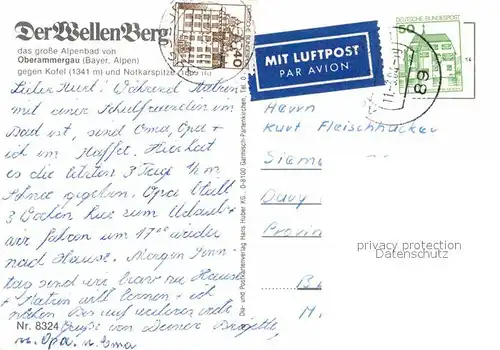 Der WellenBerg
das große Alpenbad von
Oberammergau (Bayer. Alpen)
gegen Kofel (1341 m) und Notkarspitze
Lieber Kurt! Während Katrin
mit einer Schulfreundin im
Bad ist, sind Oma, Opa +
ich im Kaffee. Hier hat
es die letzten 3 Tage ½ m
Schnee gegeben. Opa bleibt
3 Wochen hier zum Urlaub +
wir fahren um 17⁰⁰ wieder
nach Hause. Morgen Sonn-
tag sind wir brav zu Hause
+ Katrin will lernen + ich
nähen. Bis auf weiteres viele
Nr. 8324 Grüße von Deiner Brigitte,
m. Opa u. Oma
Dia- und Postkartenverlag Hans Huber KG, D-8100 Garmisch-Partenkirchen, Tel. 0
MIT LUFTPOST
PAR AVION
50
DEUTSCHE BUNDESPOST
89
Herrn
Kurt Fleischhacker
Siem
Davy
Provin
privacy protection
Datenschutz